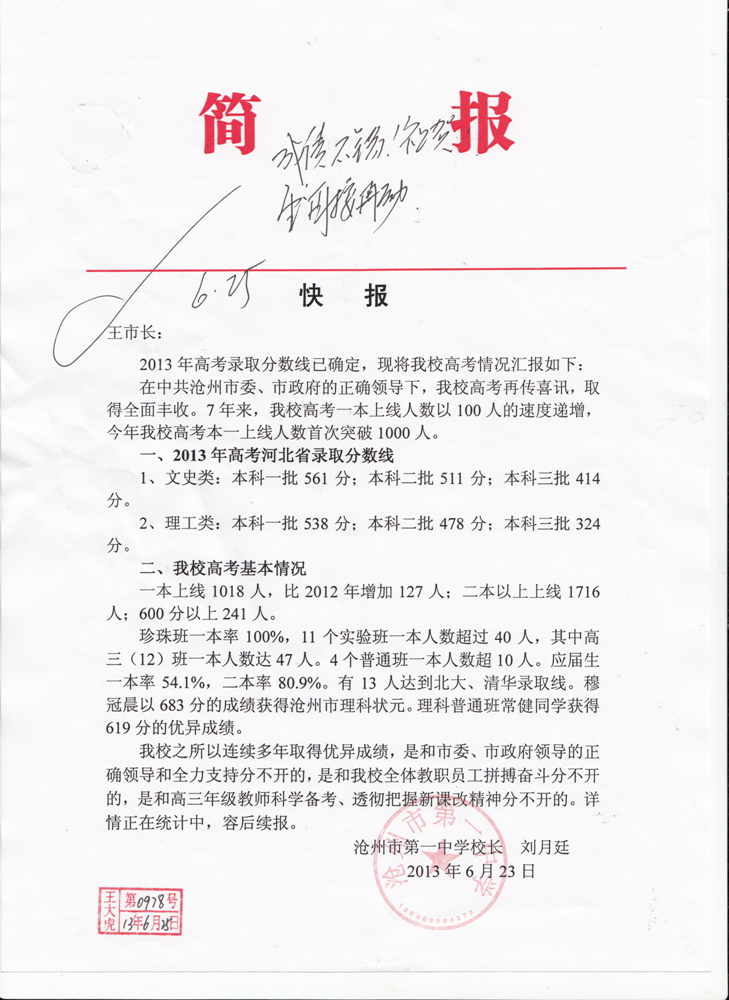 简 报
成绩不错！祝贺！
6.25
快 报
王市长：
2013 年高考录取分数线已确定，现将我校高考情况汇报如下：
在中共沧州市委、市政府的正确领导下，我校高考再传喜讯，取
得全面丰收。7 年来，我校高考一本上线人数以 100 人的速度递增，
今年我校高考本一上线人数首次突破 1000 人。
一、2013 年高考河北省录取分数线
1、文史类：本科一批 561 分；本科二批 511 分；本科三批 414
分。
2、理工类：本科一批 538 分；本科二批 478 分；本科三批 324
分。
二、我校高考基本情况
一本上线 1018 人，比 2012 年增加 127 人；二本以上上线 1716
人；600 分以上 241 人。
珍珠班一本率 100%，11 个实验班一本人数超过 40 人，其中高
三（12）班一本人数达 47 人。4 个普通班一本人数超 10 人。应届生
一本率 54.1%，二本率 80.9%。有 13 人达到北大、清华录取线。穆
冠晨以 683 分的成绩获得沧州市理科状元。理科普通班常健同学获得
619 分的优异成绩。
我校之所以连续多年取得优异成绩，是和市委、市政府领导的正
确领导和全力支持分不开的，是和我校全体教职员工拼搏奋斗分不开
的，是和高三年级教师科学备考、透彻把握新课改精神分不开的。详
情正在统计中，容后续报。
沧州市第一中学校长 刘月廷
2013 年 6 月 23 日
沧州市第一中学
王大虎
第0978号
13年6月25日